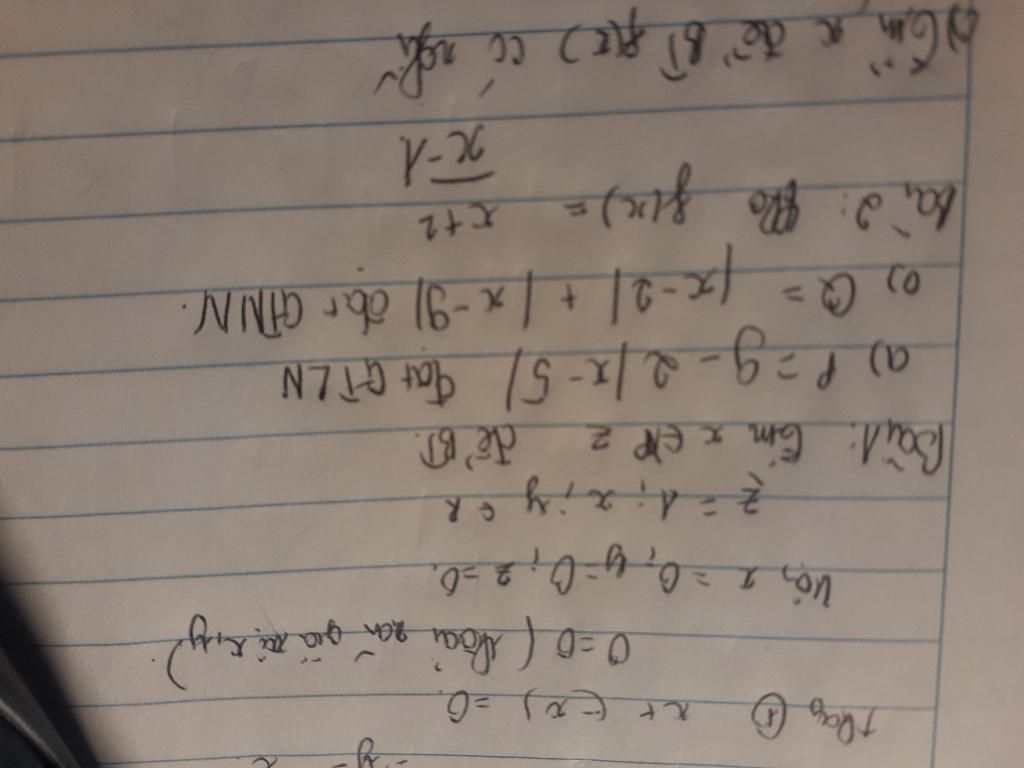 - y = x
Thay ① x + (-x) = 0
0 = 0 (thoả mãn giá trị x, y).
Với x = 0; y = 0; z = 0.
z = 1; x; y ∈ R
Bài 1: Tìm x ∈ Z để BT
a) P = 9 - 2|x - 5| đạt GTLN
b) Q = |x - 2| + |x - 9| đạt GTNN.
Bài 2: Cho f(x) = x + 2 / x - 1
a) Tìm x để BT f(x) có nghĩa